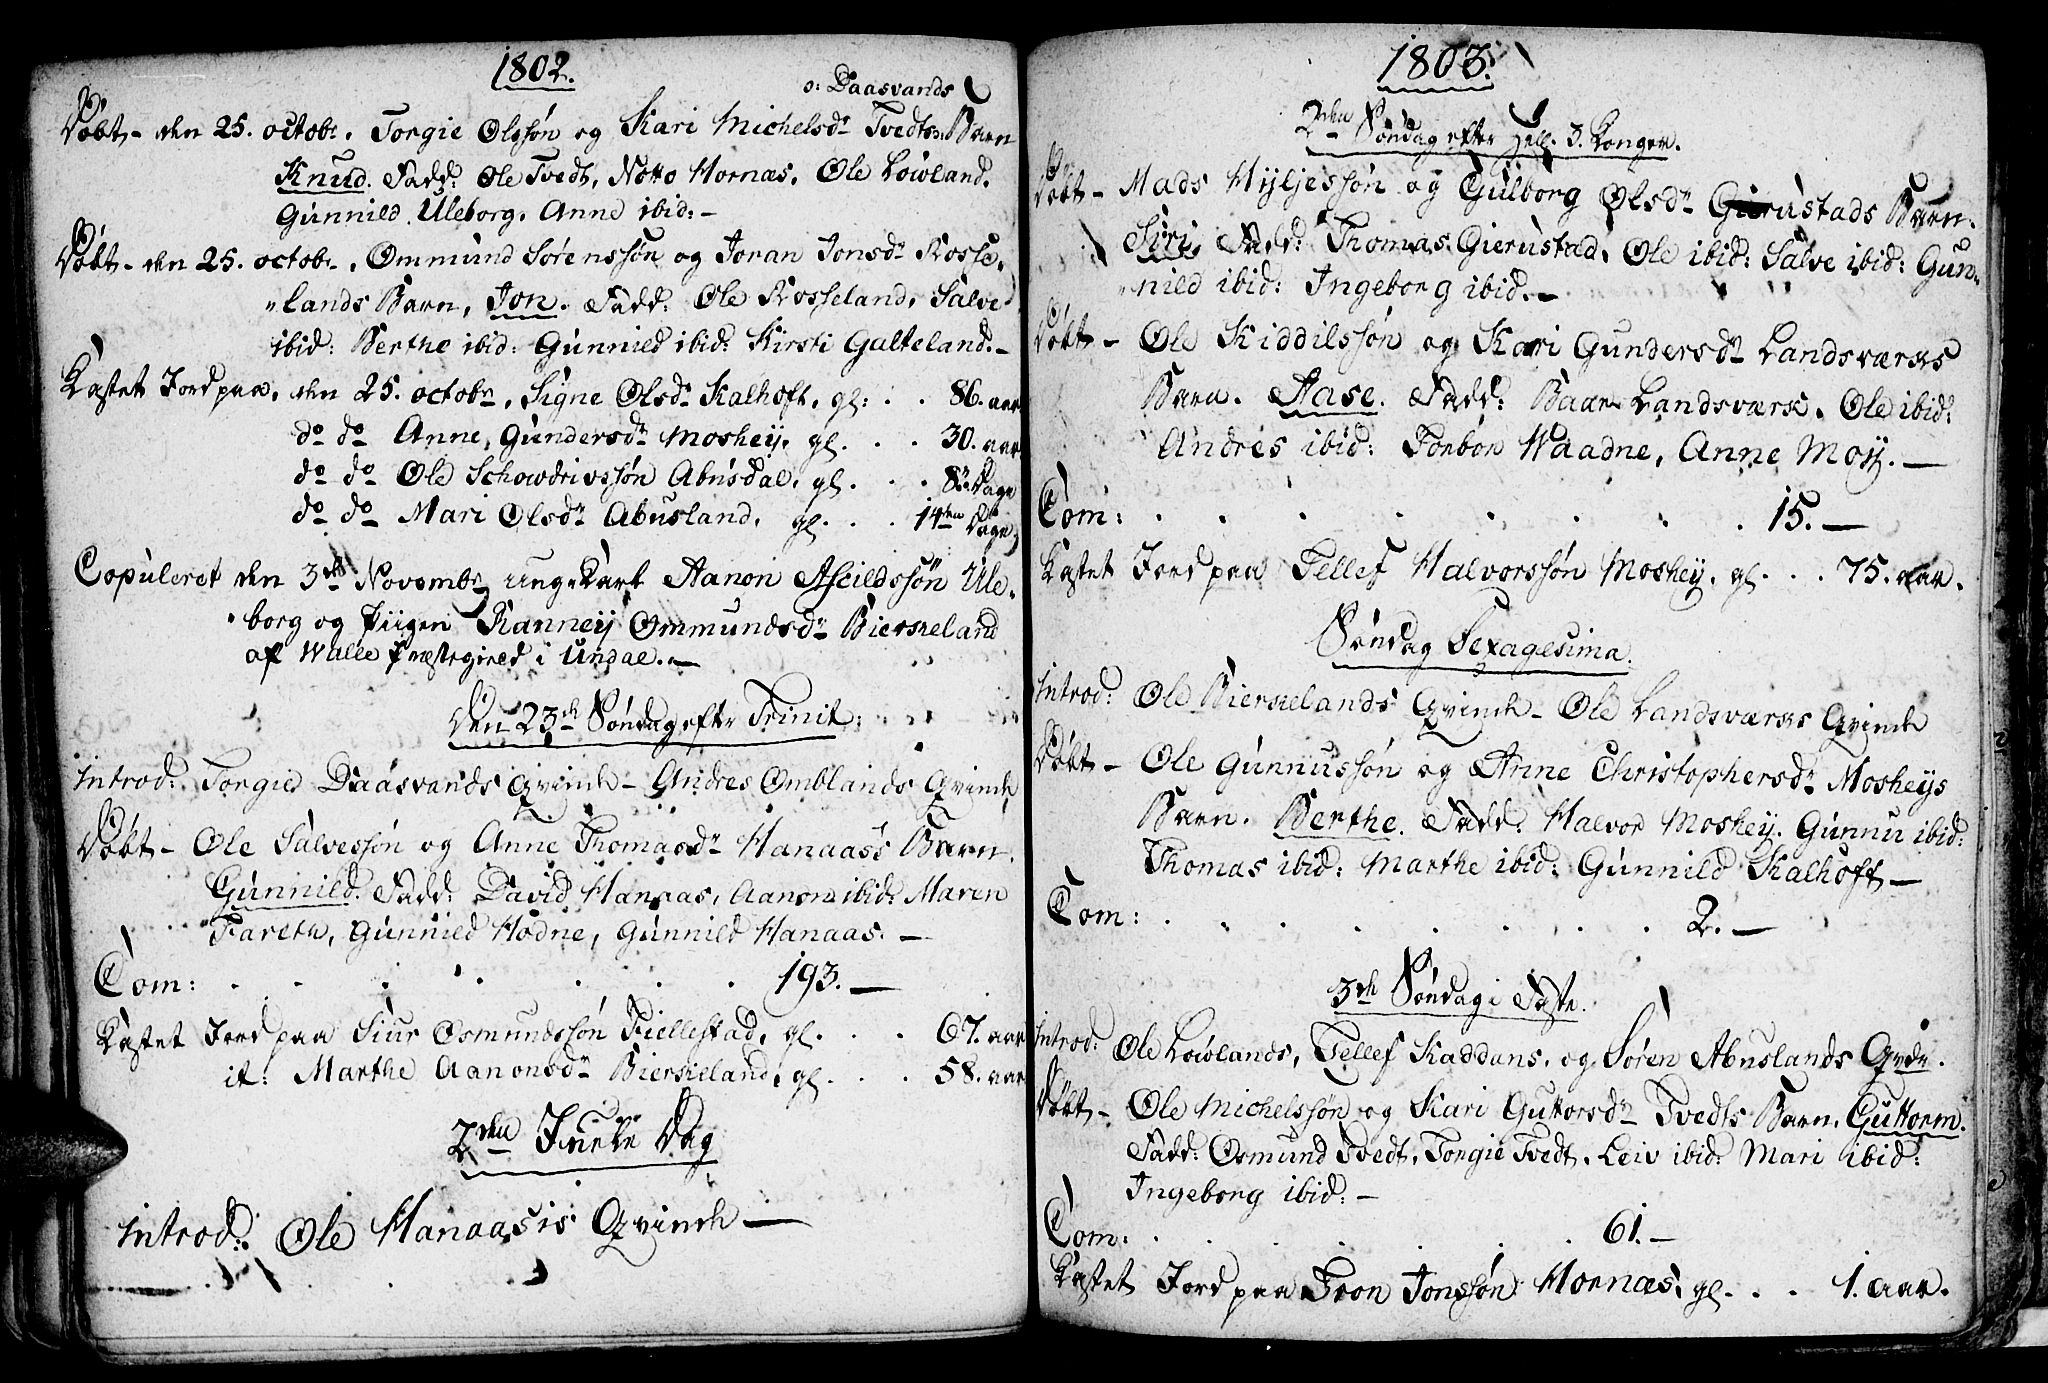 1802.
ↄ: Daasvands
Døbt - den 25. octobr. Torgie Olssøn og Kari Michelsdr Tvedts Barn
Knud. Fadd: Ole Tvedt, Notto Hornæs, Ole Løwland,
Gunnild Uleborg, Anne ibid: -
Døbt - den 25. octobr. Ommund Sørenssøn og Joran Jonsdr Rosse,
"lands Barn, Jon. Fadd: Ole Rosseland, Salve
ibid: Berthe ibid: Gunnild ibid: Kirsti Galteland. -
Kastet Jord paa, den 25. octobr, Signe Olsdr Kalhoft, gl: . . 86. aar
do do Anne Gundersdr Moshey, gl. . . 30. aar
do do Ole Schowdrivssøn Abusdal, gl. . . 8te Dage
do do Mari Olsdr Abusland, gl. . . 14ten Dage
Copuleret den 3die Novembr, ungekarl Aanon Ascildssøn Ule,
borg og Piigen Ranney Ommundsdr Bierkeland
af Walle Præstegield i Undal. -
Den 23de Søndag efter Trinit:
Introd: Torgie Daasvands Qvinde - Andres Omblands Qvinde
Døbt - Ole Salvessøn og Anne Thomasdr Hanaas's Barn.
Gunnild. Fadd: David Hanaas, Aanon ibid: Maren
Fareth, Gunnild Hodne, Gunnild Hanaas. -
Com: . . . . . . . 193. -
Kastet Jord paa Siur Osmundssøn Fiellestad, gl. . . 67. aar
it: Marthe Aanonsdr Bierkeland, gl. . . 58. aar
2den Juule Dag
Introd: Ole Hanaasis Qvinde -
1803.
2den Søndag efter Hell. 3. Konger.
Døbt - Mads Hyljessøn og Gulborg Olsdr Gierustads Barn.
Siri, Fadd: Thomas Gierustad, Ole ibid: Salve ibid: Gun-
"nild ibid: Ingeborg ibid. -
Døbt - Ole Kiddilssøn og Kari Gundersdr Landsværks
Barn. Aase. Fadd: Baar Landsværk. Ole ibid:
Andres ibid: Torbor Waadne, Anne Moy. -
Com: . . . . . . . 15. -
Kastet Jord paa Tellef Halvorssøn Moshey, gl. . . 75. aar.
Søndag Sexagesima.
Introd: Ole Bierkelands Qvinde - Ole Landsværks Qvinde
Døbt - Ole Gunnussøn og Anne Christophersdr Mosheys
Barn. Berthe. Fadd: Halvor Moshey. Gunnu ibid:
Thomas ibid: Marthe ibid: Gunnild Kalhoft -
Com: . . . . . . . 2. -
3die Søndag i Faste.
Introd: Ole Løwlands, Tellef Kaddans, og Søren Abuslands Qvdr.
Døbt - Ole Michelssøn og Kari Guttorsdr Tvedts Barn. Guttorm.
Fadd: Osmund Tvedt, Torgie Tvedt, Leiv ibid: Mari ibid:
Ingeborg ibid: -
Com: . . . . . . 61. -
Kastet Jord paa Tron Jonssøn Hornæs, gl. . . . 1. aar.